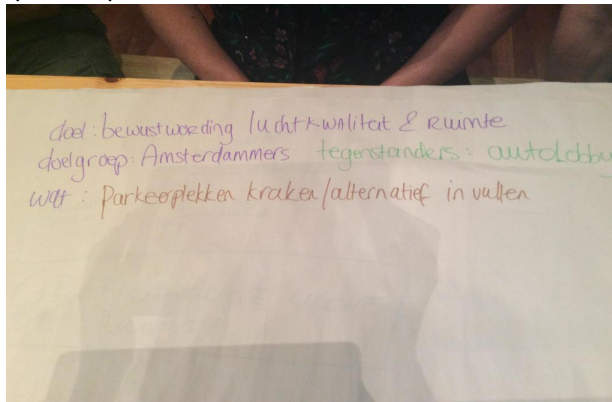 doel: bewustwording luchtkwaliteit & Ruimte
doelgroep: Amsterdammers tegenstanders: autolobby
wat: Parkeerplekken kraken/alternatief in vullen